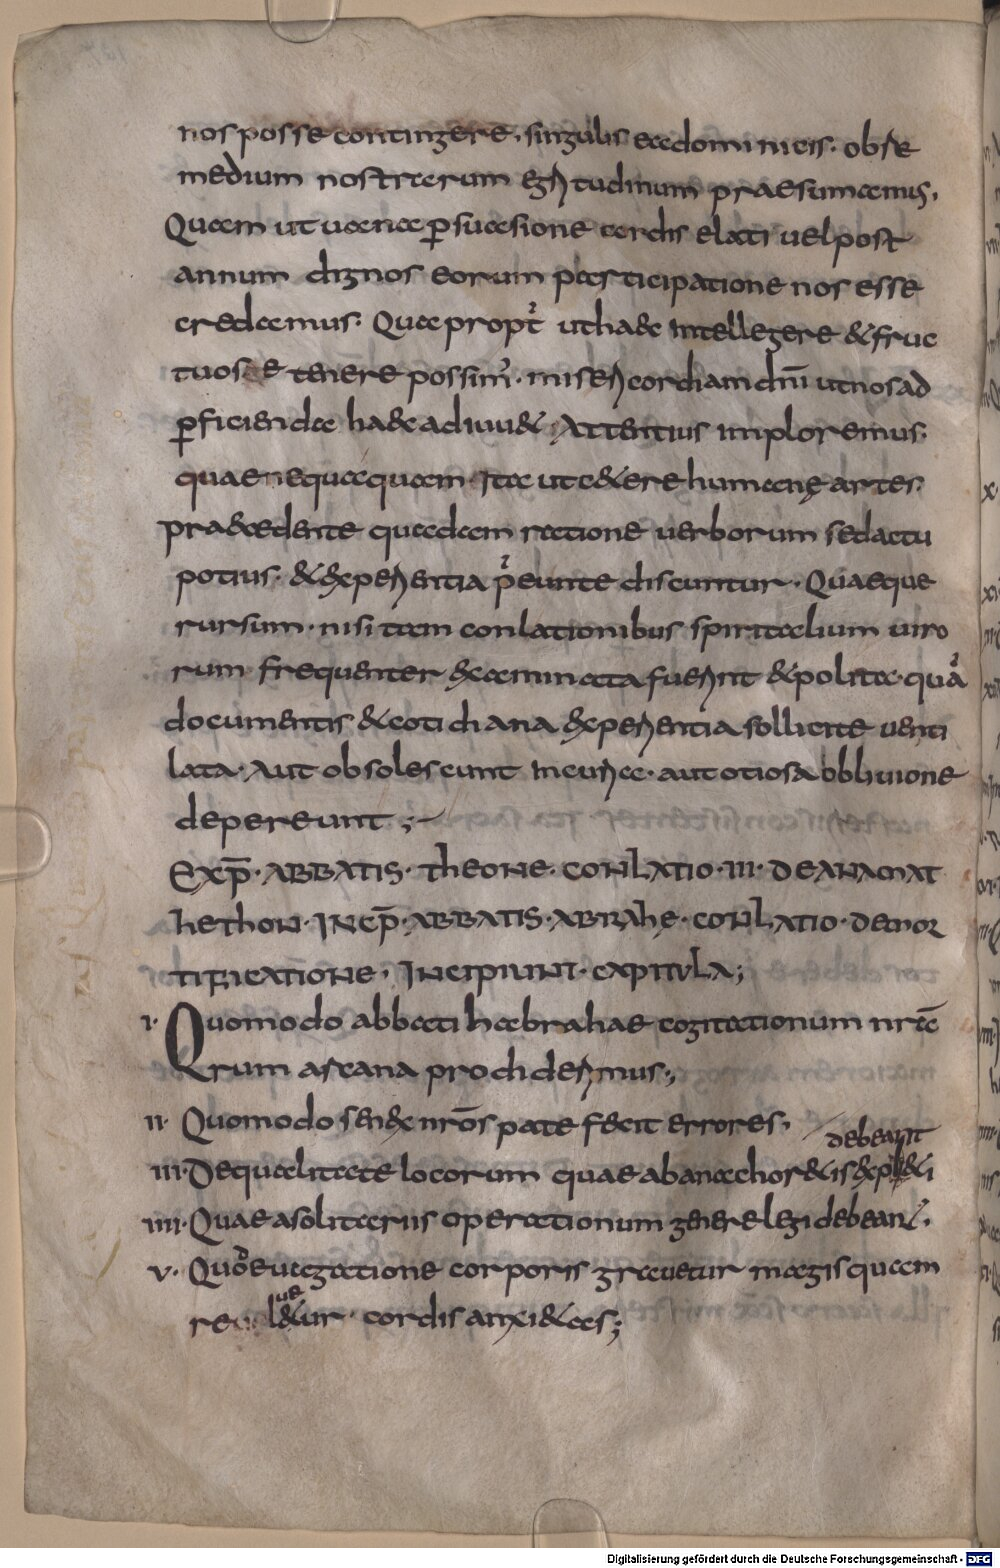 nos posse contingere. singulis eas dominicis. ob re
medium nostrarum egritudinum praesumamus.
Quam ut uana p̱suasione cordis elati uel post
annum dignos eorum participatione nos esse
credamus. Quapropt̓ ut haec intellegere & fruc
tuose tenere possim̓. misericordiam dn̄i ut nos ad
p̱ficienda haec adiuu& Attentius imploremus.
quae nequaquam. Ita ut c&erę humanę artes.
praecedente quadam ratione uerborum sed actu
potius. & exper entia p̓eunte discuntur. Quaeque
rursum. nisi tam conlationibus spiritalium uiro
rum frequenter examinata fuerint & polita. quā
documentis & cotidiana experientia sollicite uenti
lata. Aut obsolescunt incuria. aut otiosa obliuione
depereunt ;
EXP̄. ABBATIS. THEONE. CONLATIO. III. DE ANAMAT
hETHON. INCP̄. ABBATIS. ABRAhę. CONLATIO. DE MOR
TIFICATIONE. INCIPIUNT. CAPITVLA;
I. Quomodo abbati habrahae cogitationum nr̄a
rum arcana prodiderimus;
II. Quomodo senex nr̄os patefecit errores.
debeant
III. De qualitate locorum quae ab anachor&is exp&i
IIII. Quae a solitariis operationum genere legi debean&.
V. Quōd euagatione corporis grauetur magis quam
ue
rel&ur cordis anxi&as;